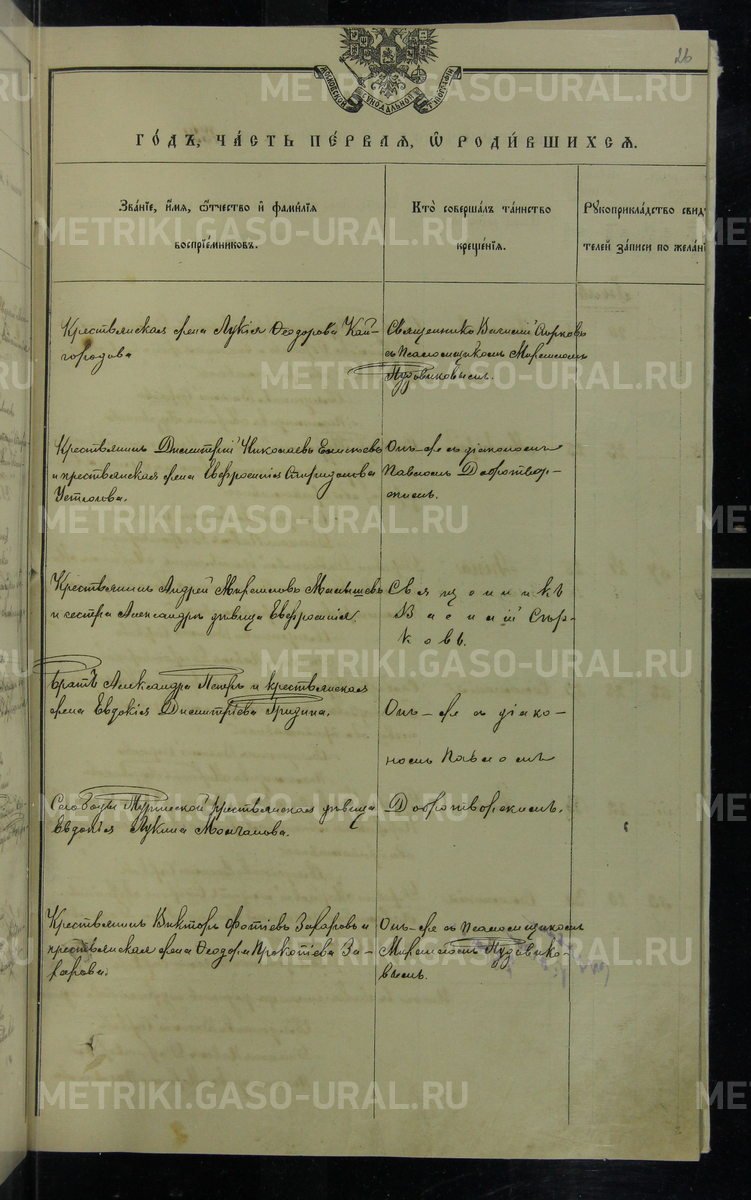 26
МОСКОВСКОЙ СѴНОДАЛЬНОЙ ТИПОГРАФІИ
ГО́ДЪ, ЧА́СТЬ ПЕ́РВАЯ, Ѽ РОДИ́ВШИХСЯ.
Зва́нїе, и҆́мя, ѻ҆́тчество и҆ фами́лїя
воспрїе́мниковъ.
Кто̀ соверша́лъ та́инство
креще́нїя.
Рꙋкоприкла́дство свид
телей за́писи по жела́н
Крестьянская жена Лукія Ѳеодорова Кай-
городова
Священникъ Василій Сырковъ
съ Псаломщикомъ
Пудовиковымъ.
Крестьянинъ Димитрій Николаевъ
и крестьянская жена Евфросинія Спиридонова
Устюгова.
Онъ-же съ діакономъ
Павломъ Добротвор-
скимъ.
Крестьянинъ Андрей Малышевъ
и сестра Александры дѣвица Евфросинія.
Священникъ
Василій Сыр-
ковъ.
Братъ Александра Петръ и крестьянская
жена Евдокія Димитріева Гридина.
Онъ-же съ діако-
номъ Павломъ
Добротворскимъ.
Слободы крестьянская дѣвица
Евдокія Лукина Молчанова.
Крестьянинъ Викторъ Фотіевъ Захаровъ и
крестьянская жена Ѳеодора Прокопіева За-
харова.
Онъ-же съ Псаломщикомъ
Пудовико-
вымъ.
METRIKI.GASO-URAL.RU